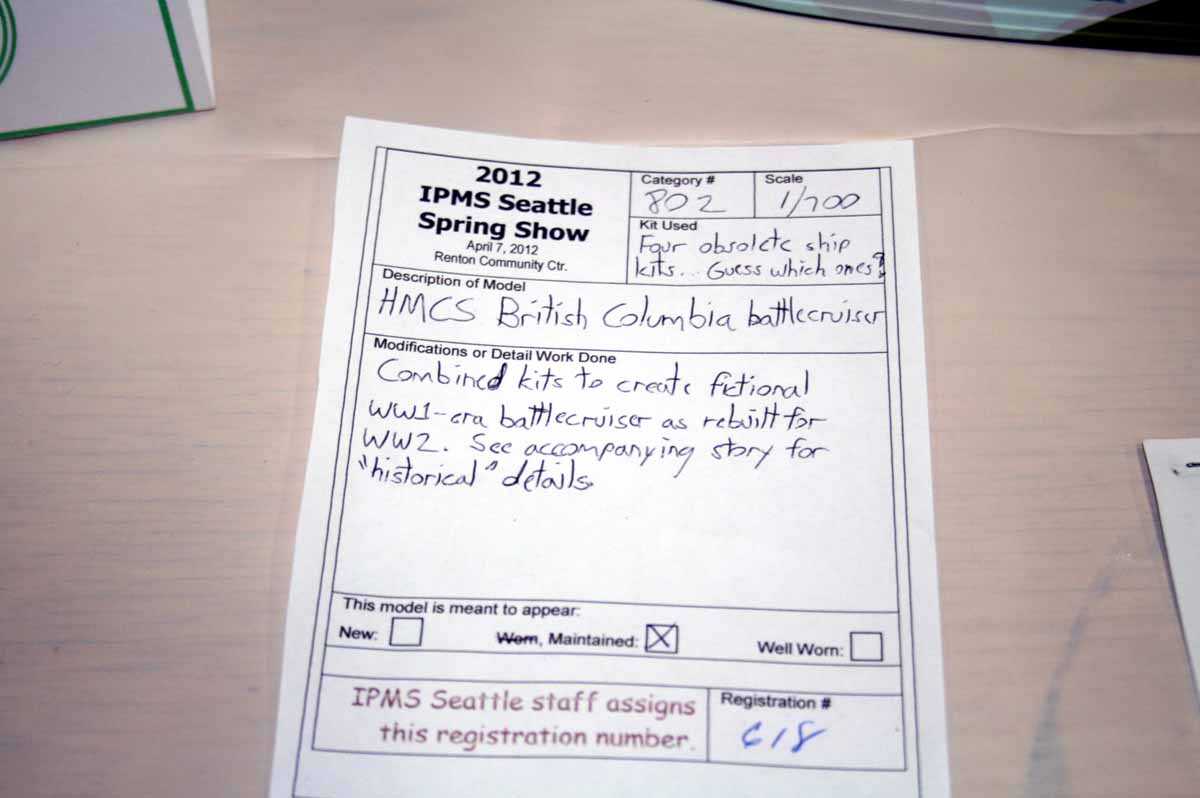 2012
IPMS Seattle
Spring Show
April 7, 2012
Renton Community Ctr.
Category #
802
Scale
1/700
Kit Used
Four obsolete ship
kits... Guess which ones?
Description of Model
HMCS British Columbia battlecruiser
Modifications or Detail Work Done
Combined kits to create fictional
WW1-era battlecruiser as rebuilt for
WW2. See accompanying story for
"historical" details.
This model is meant to appear:
New: Worn, Maintained: X Well Worn:
IPMS Seattle staff assigns
this registration number.
Registration #
618